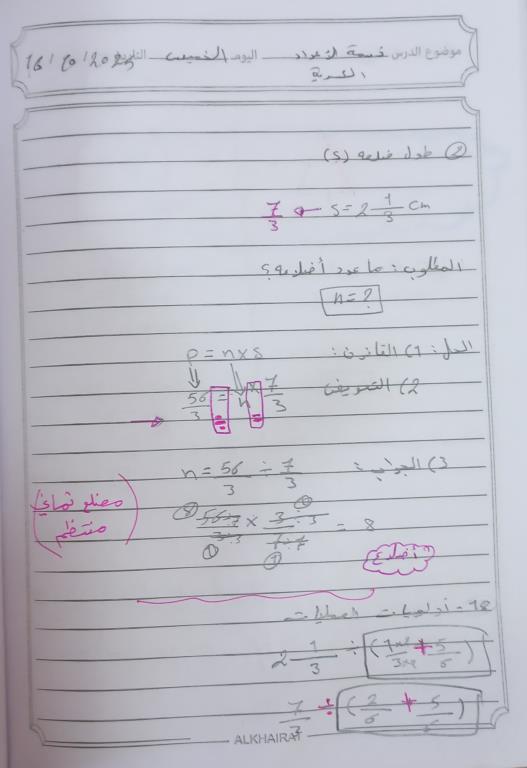 موضوع الدرس قسمة الأعداد الكسرية اليوم الخميس التاريخ 16/10/2025
② طول ضلعه (s)
s = 2 1/3 cm ← 7/3
المطلوب: ما عدد أضلاعه؟
n = ?
الحل: 1) القانون: p = n x s
2) التعويض 56/3 = n x 7/3
3) الجواب: n = 56/3 ÷ 7/3
56÷7/3÷3 x 3÷3/7÷7 = 8
أضلاع
مضلع ثماني
منتظم
18- أولويات العمليات
2 1/3 ÷ (1x2/3x2 + 5/6)
7/3 ÷ (2/6 + 5/6)
ALKHAIRAT